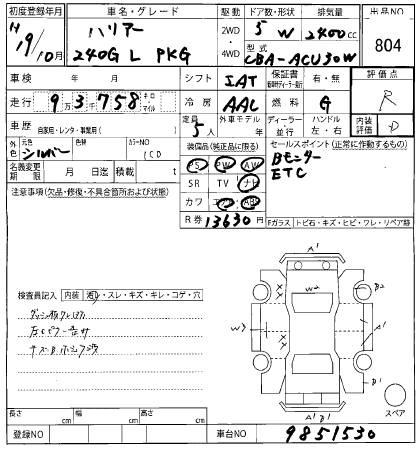 初度登録年月 車名・グレード 駆動 ドア数・形状 排気量 出品NO
H 19/10月 ハリアー 2WD 5 W 2400cc 804
240G L PKG 4WD 型式 CBA-ACU30W
車検 年 月 シフト IAT 保証書 有・無 評価点
走行 93758 キロ・マイル 冷房 AAC 燃料 G R
車歴 自家用・レンタ・事業用( ) 定員 5人 外車モデル 年 ディーラー 並行 ハンドル 左・右 内装評価 D
外色 元色 シルバー 色替 カラーNO (CD 装備品(純正品に限る) セールスポイント(正常に作動するもの)
名義変更期限 月 日迄 積載 t PS PW AW Bモニター
注意事項(欠品・修復・不具合箇所および状態) SR TV ナビ ETC
カワ エアB ABS
R券 13630 Fガラス トビ石・キズ・ヒビ・ワレ・リペア跡
検査員記入 内装 スレ・キズ・キレ・コゲ・穴
A1
W2
B2
W2
A1
B1
A1 B1
スペア
長さ cm 幅 cm 高さ cm
登録NO 車台NO 9851530